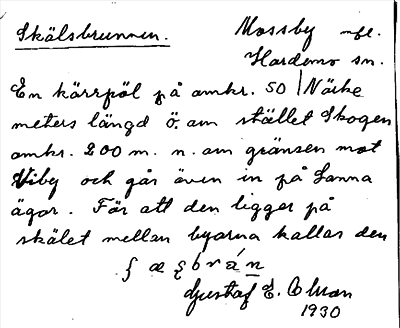 Skälsbrunnen. Mossby nfl.
Hardemo sn.
En kärrpöl på omkr. 50 | Närke
meters längd ö. om stället Skogen
omkr. 200 m. n. om gränsen mot
Viby och går även in på Sanna
ägor. För att den ligger på
skälet mellan byarna kallas den
Gustaf E. Olsson
1930